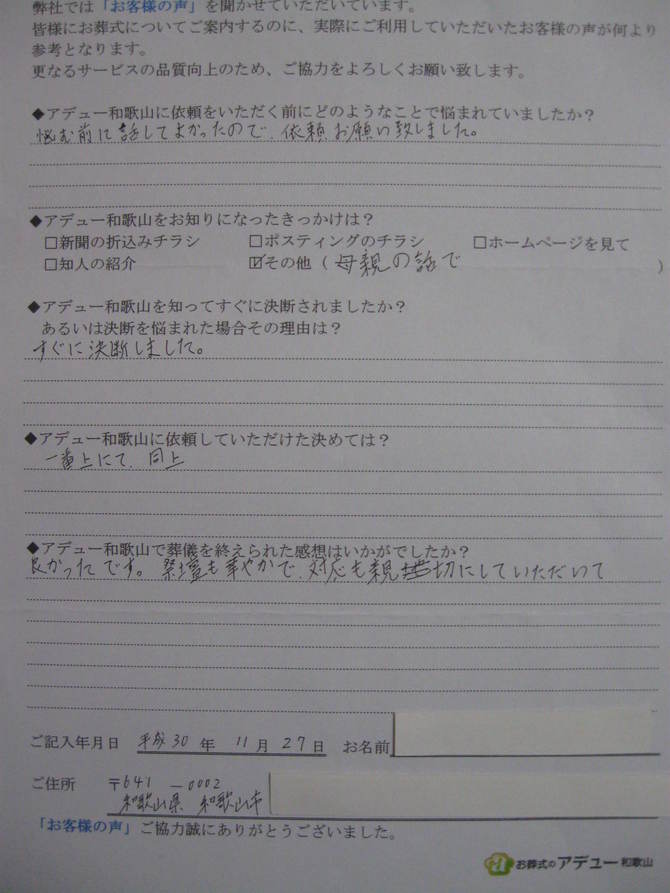 弊社では「お客様の声」を聞かせていただいています。
皆様にお葬式についてご案内するのに、実際にご利用していただいたお客様の声が何より
参考となります。
更なるサービスの品質向上のため、ご協力をよろしくお願い致します。
◆アデュー和歌山に依頼をいただく前にどのようなことで悩まれていましたか？
悩む前に話してよかったので、依頼お願い致しました。
◆アデュー和歌山をお知りになったきっかけは？
□新聞の折込みチラシ □ポスティングのチラシ □ホームページを見て
□知人の紹介 ☑その他（母親の話で）
◆アデュー和歌山を知ってすぐに決断されましたか？
あるいは決断を悩まれた場合その理由は？
すぐに決断しました。
◆アデュー和歌山に依頼していただけた決めては？
一番上にて、同上
◆アデュー和歌山で葬儀を終えられた感想はいかがでしたか？
良かったです。祭壇も華やかで、対応も親切にしていただいて
ご記入年月日 平成30年 11月27日 お名前
ご住所 〒641－0002
和歌山県 和歌山市
「お客様の声」ご協力誠にありがとうございました。
お葬式のアデュー和歌山